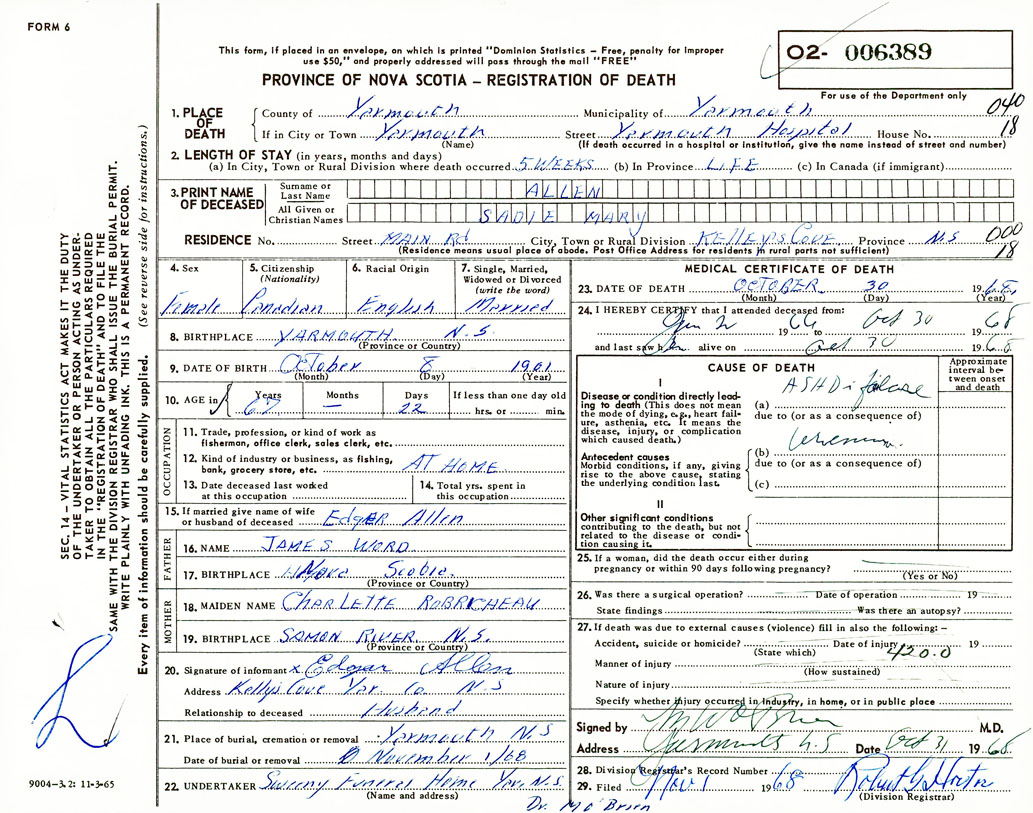 FORM 6
This form, if placed in an envelope, on which is printed "Dominion Statistics – Free, penalty for improper
use $50," and properly addressed will pass through the mail "FREE"
PROVINCE OF NOVA SCOTIA – REGISTRATION OF DEATH
O2- 006389
For use of the Department only
040
18
1. PLACE OF DEATH
County of Yarmouth Municipality of Yarmouth
If in City or Town Yarmouth Street Yarmouth Hospital House No.
(Name) (If death occurred in a hospital or institution, give the name instead of street and number)
2. LENGTH OF STAY (in years, months and days)
(a) In City, Town or Rural Division where death occurred 5 WEEKS (b) In Province LIFE (c) In Canada (if immigrant)
3. PRINT NAME OF DECEASED
Surname or Last Name ALLEN
All Given or Christian Names SADIE MARY
RESIDENCE No. Street MAIN Rd City, Town or Rural Division KELLEYS COVE Province N.S
000
18
(Residence means usual place of abode. Post Office Address for residents in rural parts not sufficient)
4. Sex
Female
5. Citizenship (Nationality)
Canadian
6. Racial Origin
English
7. Single, Married, Widowed or Divorced (write the word)
Married
8. BIRTHPLACE YARMOUTH N.S.
(Province or Country)
9. DATE OF BIRTH October 8 1901
(Month) (Day) (Year)
10. AGE in Years Months Days If less than one day old
67 – 22 hrs. or min.
OCCUPATION
11. Trade, profession, or kind of work as
fisherman, office clerk, sales clerk, etc.
12. Kind of industry or business, as fishing,
bank, grocery store, etc. AT HOME
13. Date deceased last worked
at this occupation
14. Total yrs. spent in
this occupation
15. If married give name of wife
or husband of deceased Edger Allen
FATHER
16. NAME JAMES WORD
17. BIRTHPLACE Scobie
(Province or Country)
MOTHER
18. MAIDEN NAME CHARLETTE ROBRICHEAU
19. BIRTHPLACE SAMON RIVER N.S.
(Province or Country)
20. Signature of informant x Edgar Allen
Address Kellys Cove Yar. Co. N.S
Relationship to deceased Husband
21. Place of burial, cremation or removal Yarmouth N.S
Date of burial or removal November 1/68
22. UNDERTAKER Sweeny Funeral Home Yar, N.S.
(Name and address)
Dr. M O'Brien
MEDICAL CERTIFICATE OF DEATH
23. DATE OF DEATH OCTOBER 30 1968
(Month) (Day) (Year)
24. I HEREBY CERTIFY that I attended deceased from:
Jan 2 1966 to Oct 30 1968
and last saw her alive on Oct 30 1968
CAUSE OF DEATH
Approximate interval between onset and death
I
Disease or condition directly leading to death (This does not mean the mode of dying, e.g., heart failure, asthenia, etc. It means the disease, injury, or complication which caused death.)
(a) ASHD
due to (or as a consequence of)
Antecedent causes
Morbid conditions, if any, giving rise to the above cause, stating the underlying condition last.
(b) Uremia
due to (or as a consequence of)
(c)
II
Other significant conditions
contributing to the death, but not related to the disease or condition causing it.
25. If a woman, did the death occur either during
pregnancy or within 90 days following pregnancy?
(Yes or No)
26. Was there a surgical operation? Date of operation 19
State findings Was there an autopsy?
27. If death was due to external causes (violence) fill in also the following: –
Accident, suicide or homicide? Date of injury 19
(State which) 420.0
Manner of injury
(How sustained)
Nature of injury
Specify whether injury occurred in industry, in home, or in public place
Signed by M O'Brien M.D.
Address Yarmouth N.S Date Oct 31 1968
28. Division Registrar's Record Number
29. Filed Nov 1 1968
(Division Registrar)
SEC. 14 – VITAL STATISTICS ACT MAKES IT THE DUTY
OF THE UNDERTAKER OR PERSON ACTING AS UNDER-
TAKER TO OBTAIN ALL THE PARTICULARS REQUIRED
IN THE "REGISTRATION OF DEATH" AND TO FILE THE
SAME WITH THE DIVISION REGISTRAR WHO SHALL ISSUE THE BURIAL PERMIT.
WRITE PLAINLY WITH UNFADING INK. THIS IS A PERMANENT RECORD.
Every item of information should be carefully supplied. (See reverse side for instructions.)
9004–3.2: 11-3-65